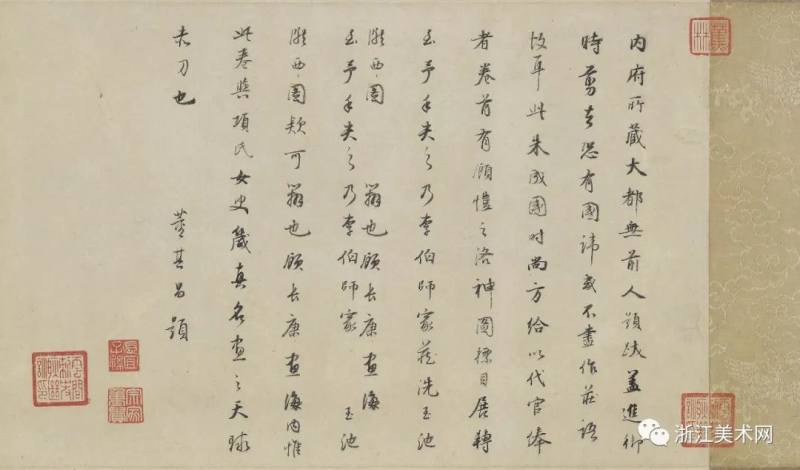 内府所藏大都無前人題跋盖進御
時剪去恐有國諱或不盡作莊語
故耳此朱成國时尚方給以代官俸
者卷首有顧愷之洛神圖標目展轉
至予手失之乃李伯師家藏洗玉池
西圖 辨也顧長康畫海
至予手失之乃李伯師家 玉池
西圖款可辨也顧長康畫海内惟
此卷與項氏女史箴真名畫之天球
赤刀也
董其昌題
浙江美术网